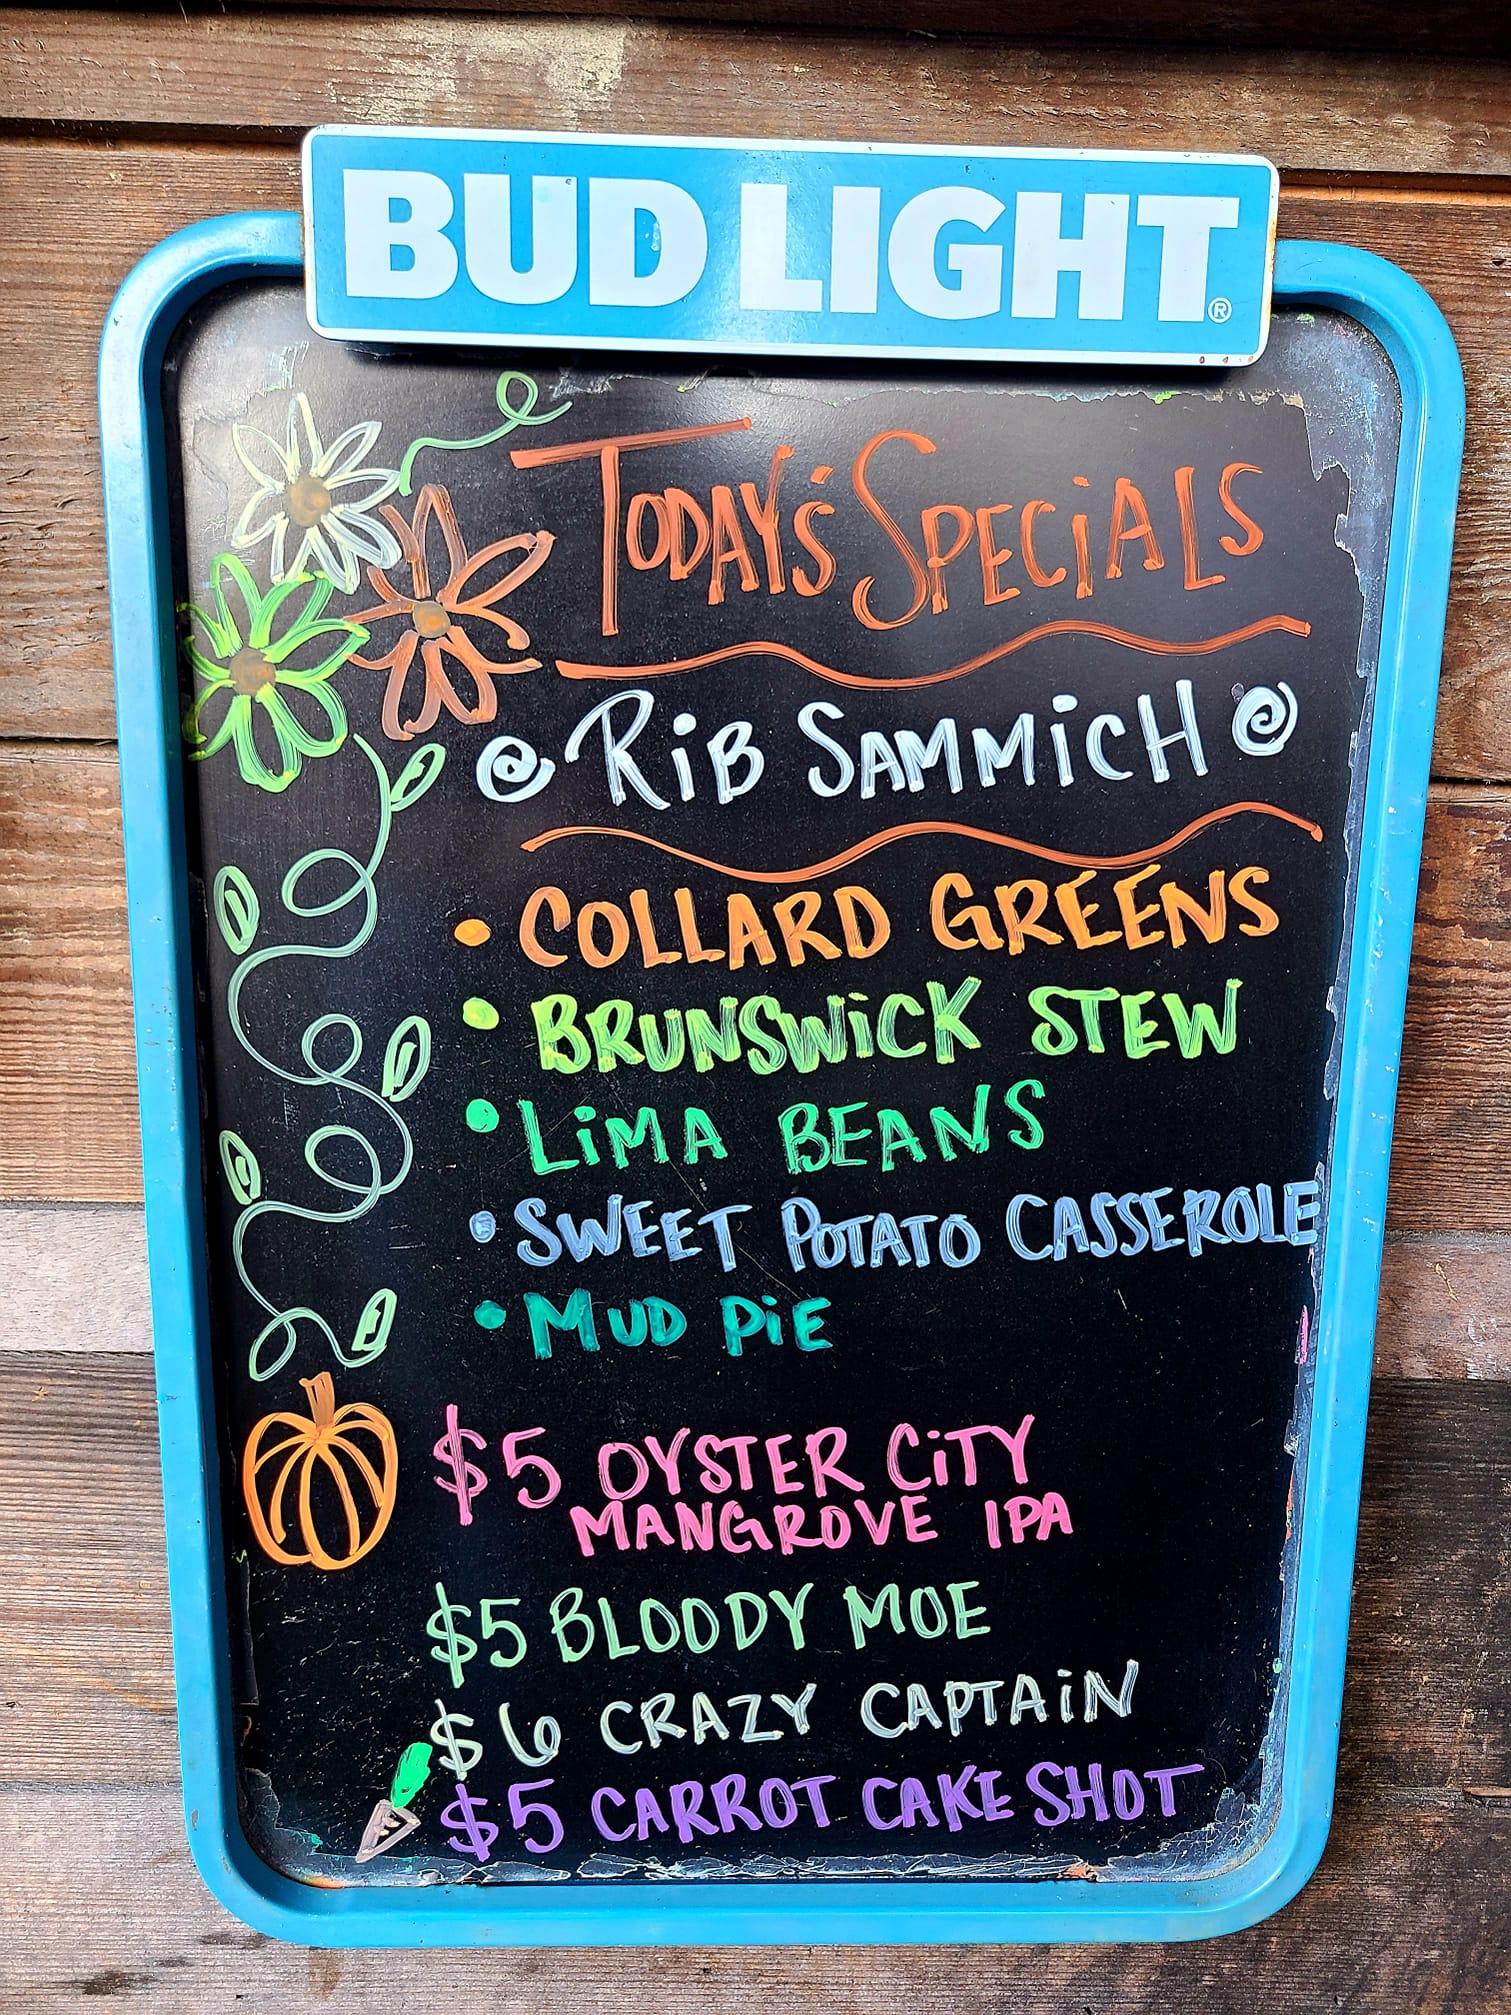 BUD LIGHT®
TODAY'S SPECIALS
RiB SAMMiCH
• COLLARD GREENS
• BRUNSWiCK STEW
• LiMA BEANS
• SWEET POTATO CASSEROLE
• MUD PiE
$5 OYSTER CiTY
MANGROVE IPA
$5 BLOODY MOE
$6 CRAZY CAPTAiN
$5 CARROT CAKE SHOT